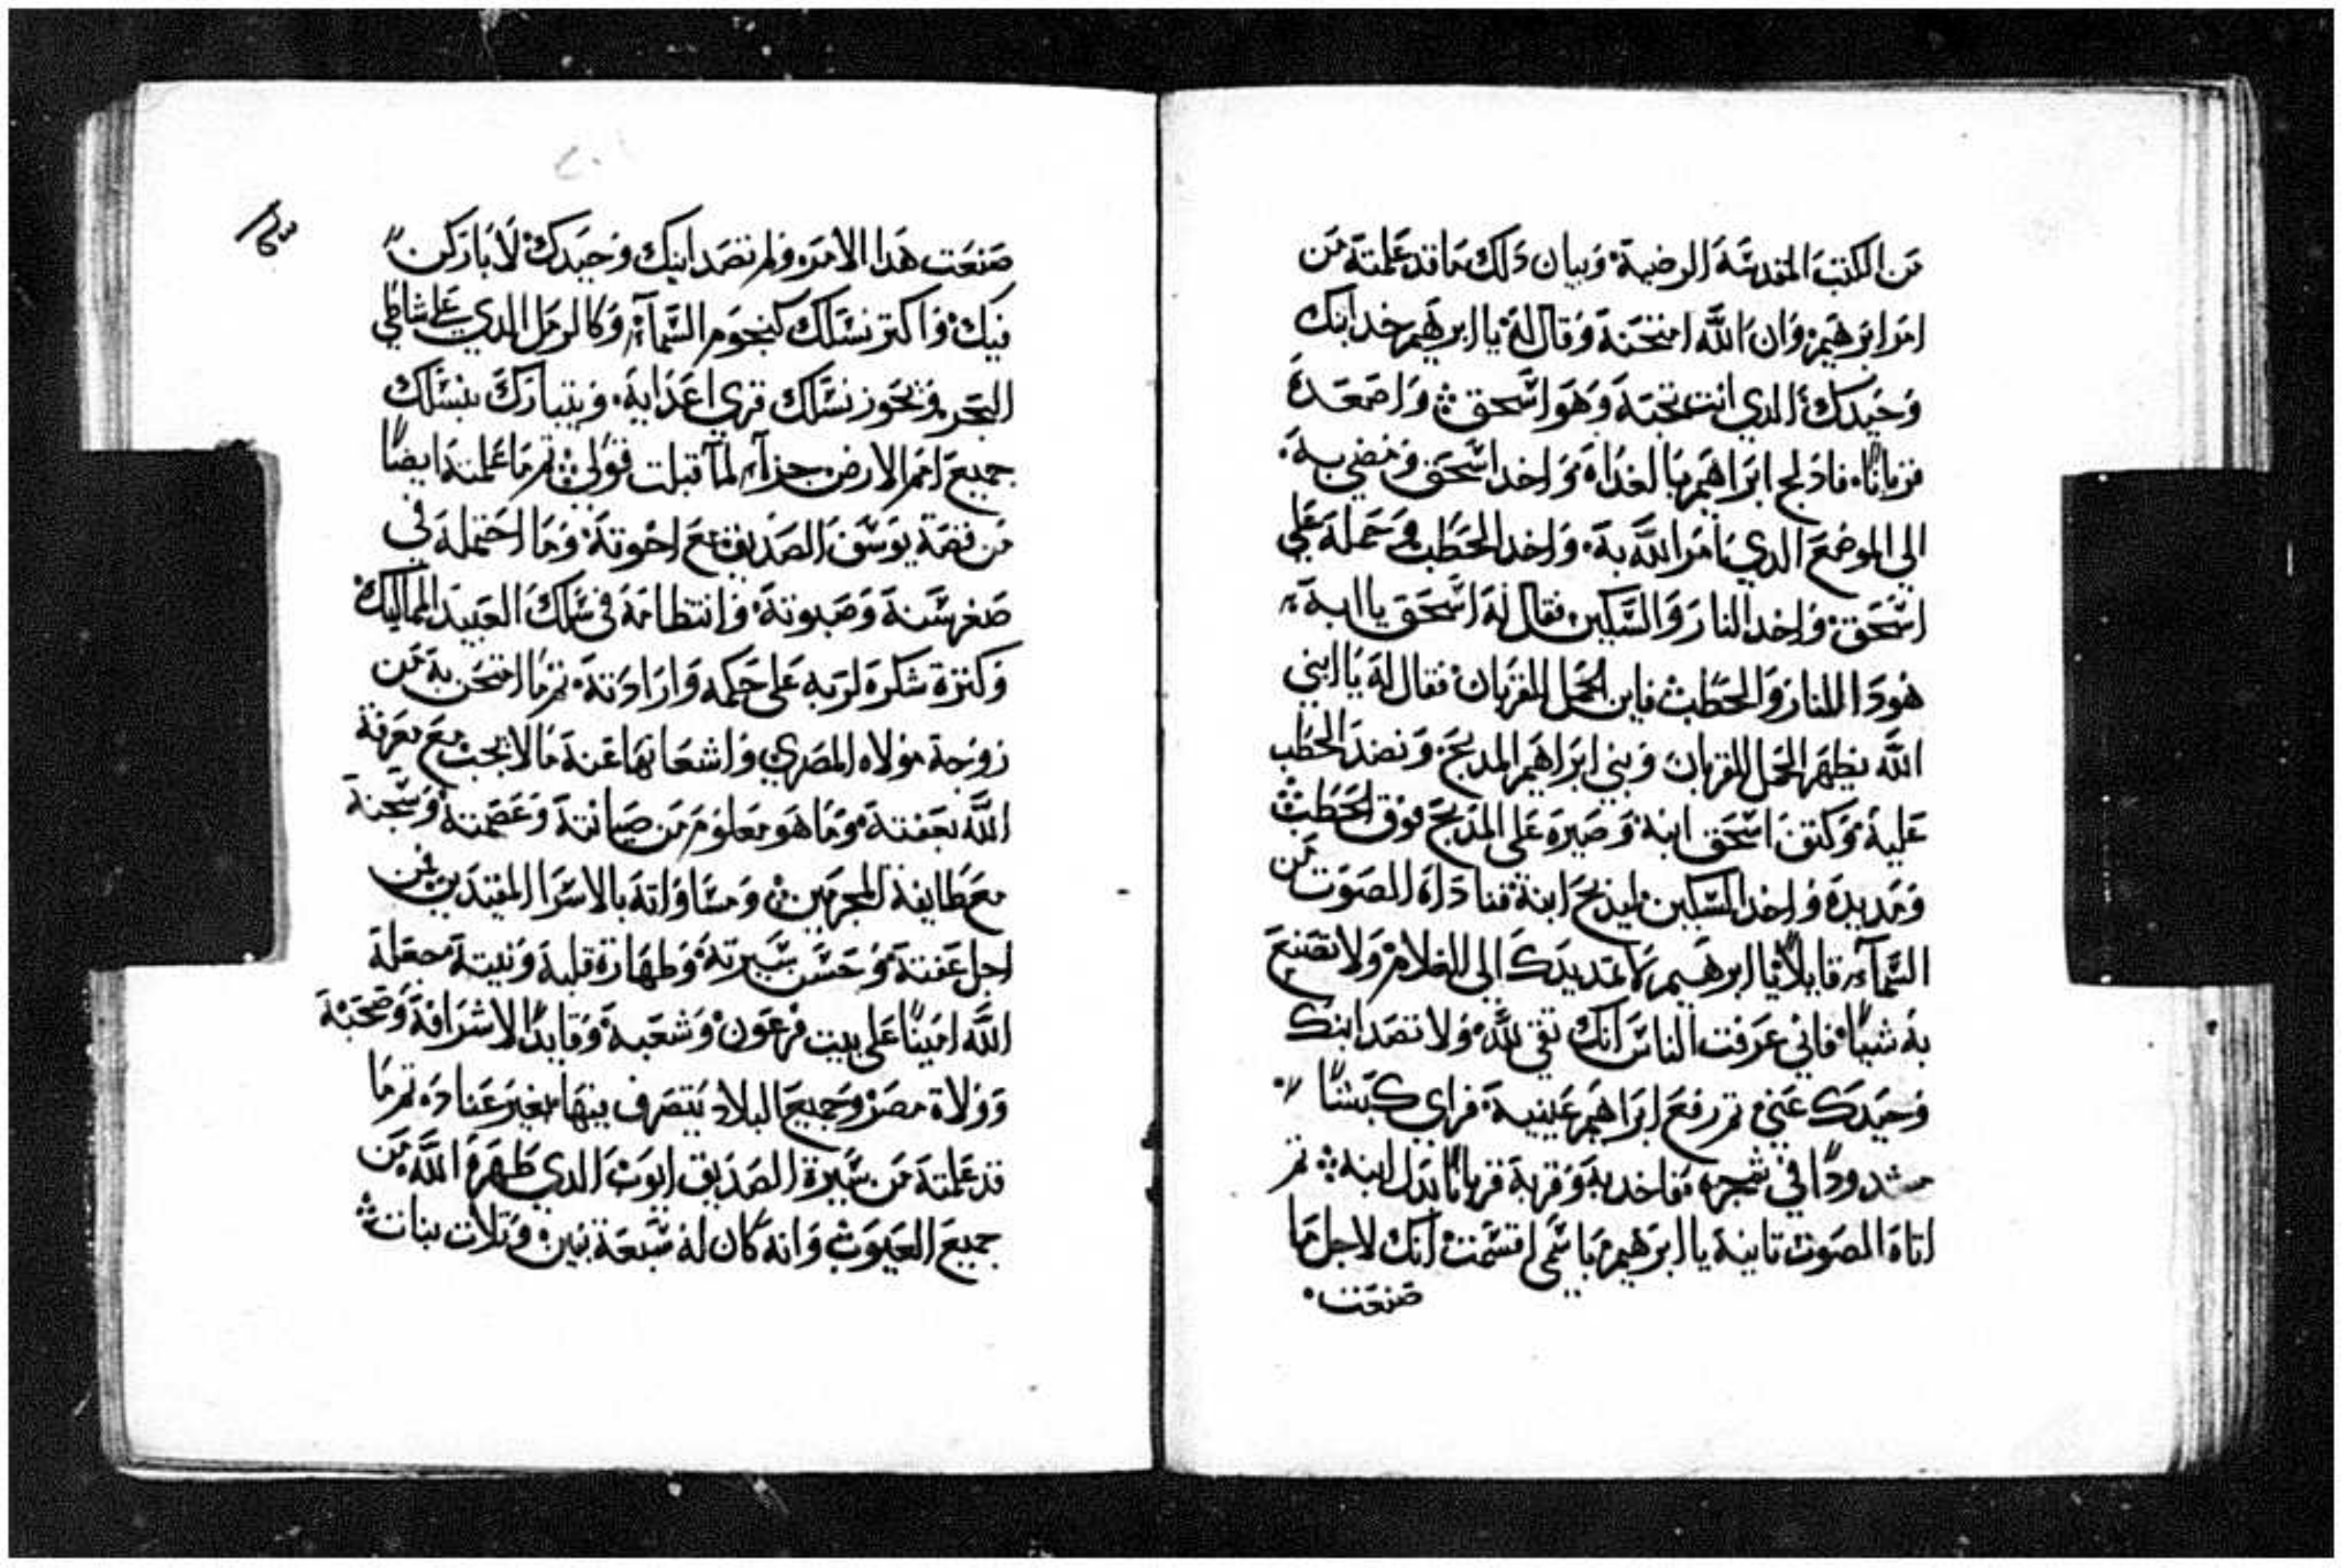 من الكتب المقدسة الرضية وبيان دلك ما قد علمته من
امر ابرهيم وان الله امتحنه وقال له يا ابرهيم خد ابنك
وحيدك الدي انت تحبه وهو اسحق واصعده
قربانًا فادلج ابراهيم بالغداه واخد اسحق ومضي به
الى الموضع الدي امر الله به واخد الحطب وحمله علي
اسحق واخد النار والسكين فقال له اسحق يا ابه
هودا النار والحطب فاين الحمل للقربان فقال له يا ابني
الله يظهر الحمل للقربان وبني ابراهيم المدبح ونضد الحطب
عليه وكتف اسحق ابنه وصيره على المدبح فوق الحطب
ومد يده واخد السكين ليدبح ابنه فناداه الصوت من
السمآء قايلًا يا ابرهيم لا تمد يدك الى الغلام ولا تصنع
به شيًا فاني عرفت الناس انك تقي لله ولا تصد ابنك
وحيدك عني تم رفع ابراهيم عينيه فراي كبشًا
مشدودًا في شجره فاخد به وقربه قربانًا بدل ابنه تم
اتاه الصوت تانية يا ابرهيم باسمى اقسمت انك لاجل ما
صنعت
صنعت هدا الامر ولم تصد ابنك وحيدك لاباركن
فيك واكتر نسلك كنجوم السمآء وكالرمل الدي على شاطي
البحر وتحوز نسلك قري اعدايه ويتبارك بنسلك
جميع امم الارض جزآء لمآ قبلت قولي تم ما علمته ايضًا
من قصة يوسف الصديق مع اخوته وما احتمله في
صغر سنه وصبوته وانتظامه في سلك العبيد المماليك
وكترة شكره لربه على حكمه واراداته تم ما امتحن به من
زوجة مولاه المصري واشعابها عنه مالا يجب مع معرفة
الله بعفته وما هو معلوم من صيانته وعصمته وسجنه
مع طايفة المجرمين ومساواته بالاسرا المقيدين من
اجل عفته وحسن سيرته وطهارة قلبه ونيته فجعله
الله امينًا على بيت فرعون وشعبه وقايدًا لاشرافه وصحبه
وولاة مصر وجميع البلاد يتصرف بينها بغير عناده تم ما
قد علمته من سيرة الصديق ايوب الدي طهره الله من
جميع العيوب وانه كان له سبعة بنين وتلات بنات